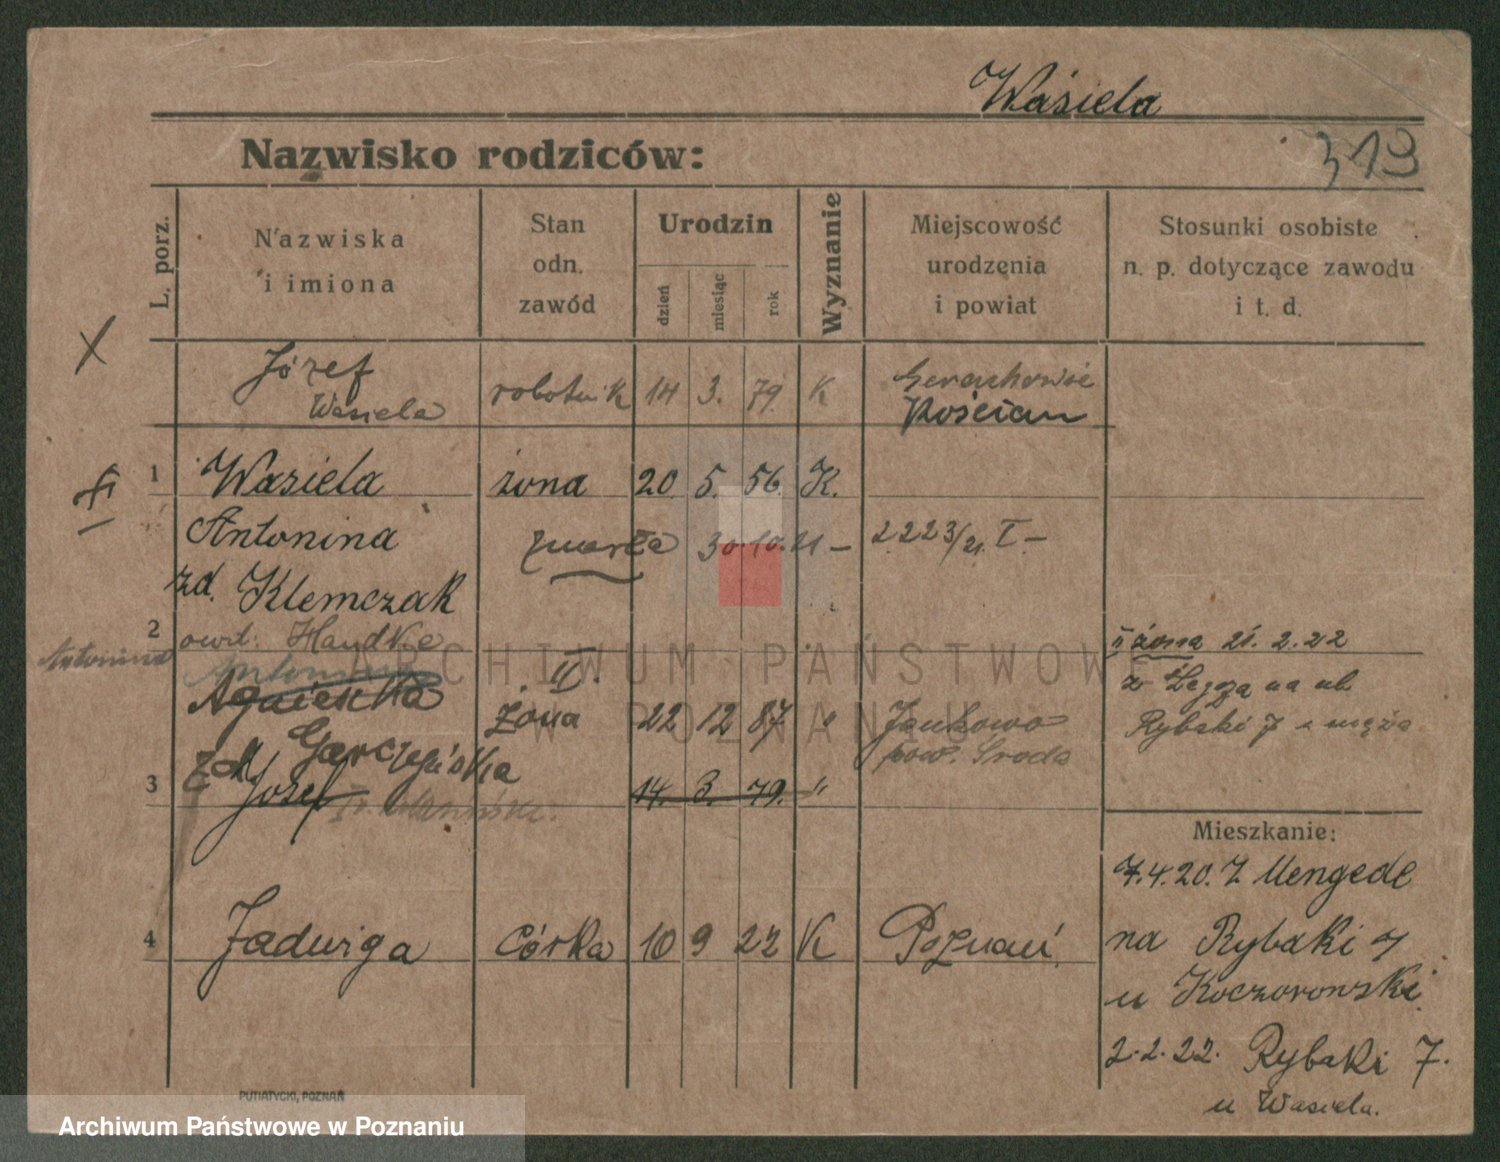 Wasiela
319
Nazwisko rodziców:
L. porz.
Nazwiska
i imiona
Stan
odn.
zawód
Urodzin
dzień
miesiąc
rok
Wyznanie
Miejscowość
urodzenia
i powiat
Stosunki osobiste
n. p. dotyczące zawodu
i t. d.
X
Józef
Wasiela
robotnik 14 3. 79. K
Kościan
1 Wasiela żona 20. 5. 56. K.
Antonina zmarła 30.10.21 – 2223/21. I. –
zd. Klemczak
2
owd. Handke
Antonina
Antonina
Agnieszka
II.
żona 22 12 87. " Jankowo
pow. Środa
zd. Garczyńska
II żona 21. 2. 22
z na ul.
Rybaki 7 męża
3 Józef 14. 3. 79. "
Mieszkanie:
7.4.20. Z Mengede
na Rybaki 7
u Koczorowski
2.2.22. Rybaki 7.
u Wasiela.
4 Jadwiga Córka 10 9 22 K Poznań
PUTIATYCKI, POZNAŃ
ARCHIWUM PAŃSTWOWE
W POZNANIU
Archiwum Państwowe w Poznaniu